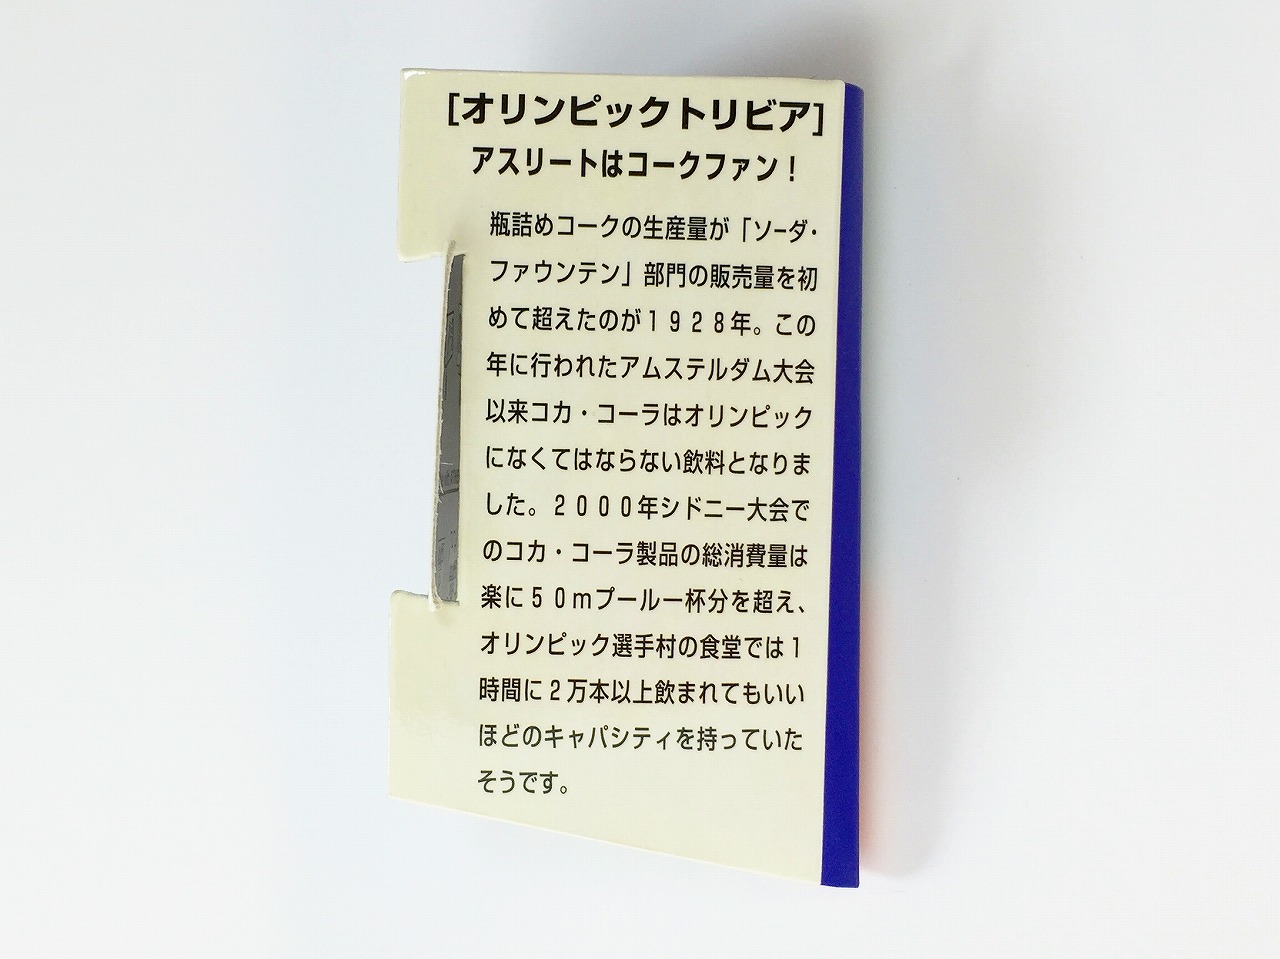 [オリンピックトリビア]
アスリートはコークファン！
瓶詰めコークの生産量が「ソーダ・
ファウンテン」部門の販売量を初
めて超えたのが１９２８年。この
年に行われたアムステルダム大会
以来コカ・コーラはオリンピック
になくてはならない飲料となりま
した。２０００年シドニー大会で
のコカ・コーラ製品の総消費量は
楽に５０ｍプール一杯分を超え、
オリンピック選手村の食堂では１
時間に２万本以上飲まれてもいい
ほどのキャパシティを持っていた
そうです。